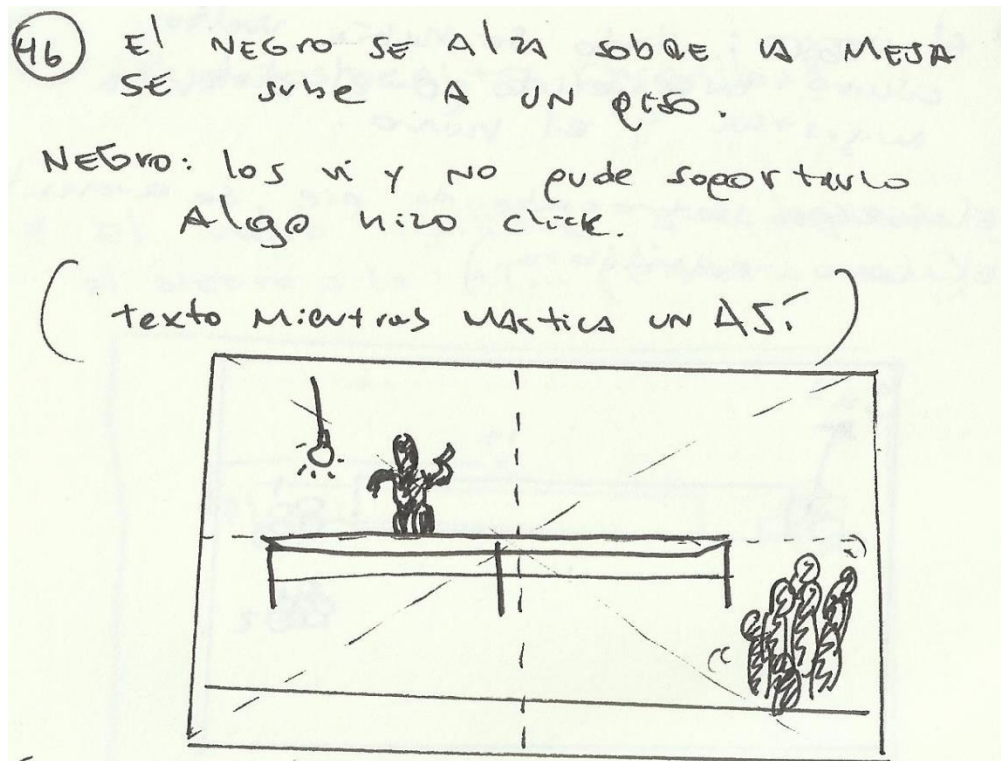 46 El NEGRO SE AlZA SOBRE LA MESA
SE SUBE A UN PISO.
NEGRO: los vi y NO pude soportarlo
Algo hizo click.
(texto MieNtras MAstica UN AJÍ)